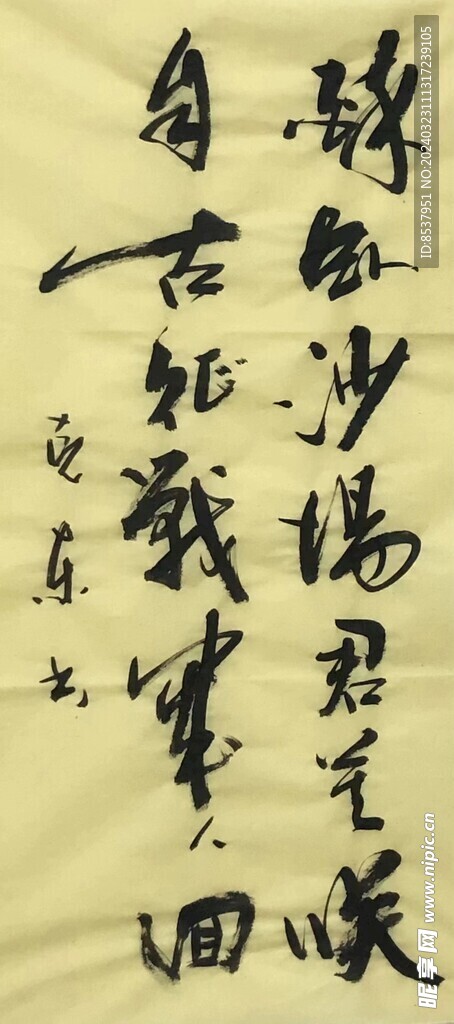 醉卧沙場君莫咲
自古征戰幾人回
克东书
ID:8537951 NO:20240323111317239105
昵享网 www.nipic.cn